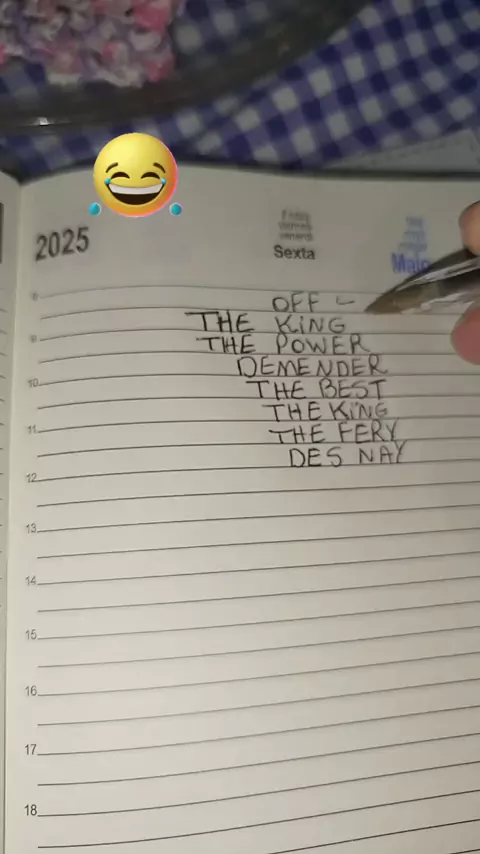 2025
Sexta
Maio
OFF
THE KING
THE POWER
DEMENDER
THE BEST
THE KING
THE FERY
DES NAY
9
10
11
12
13
14
15
16
17
18